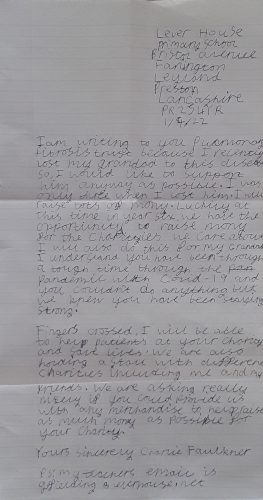 Lever House
Primary School
Bristol avenue
Farington
Leyland
Preston
Lancashire
PR25 4YR
1/4/22
I am writing to you Pulmonary
fibrosis trust because I recently
lost my grandad to this disease
So, I would like to support
him anyway as possible. I was
only when I lost him. I will
raise lots of money. Luckily at
this time in year six we have the
opportunity to raise money
for the Charities we care about
I will also do this for my Grandad
I understand you have been through
a tough time through the pan
Pandemic with Covid-19 and
you couldn't do anything but
we knew you have been staying
strong.
Fingers crossed, I will be able
to help patients at your charity
and save lives. We are also
hosting a stall with different
Charities including me and my
friends. We are asking really
nicely if you could provide us
with any merchandise to help raise
as much money as possible for
your Charity.
Yours Sincerely Faulkner
P.S. my teachers email is